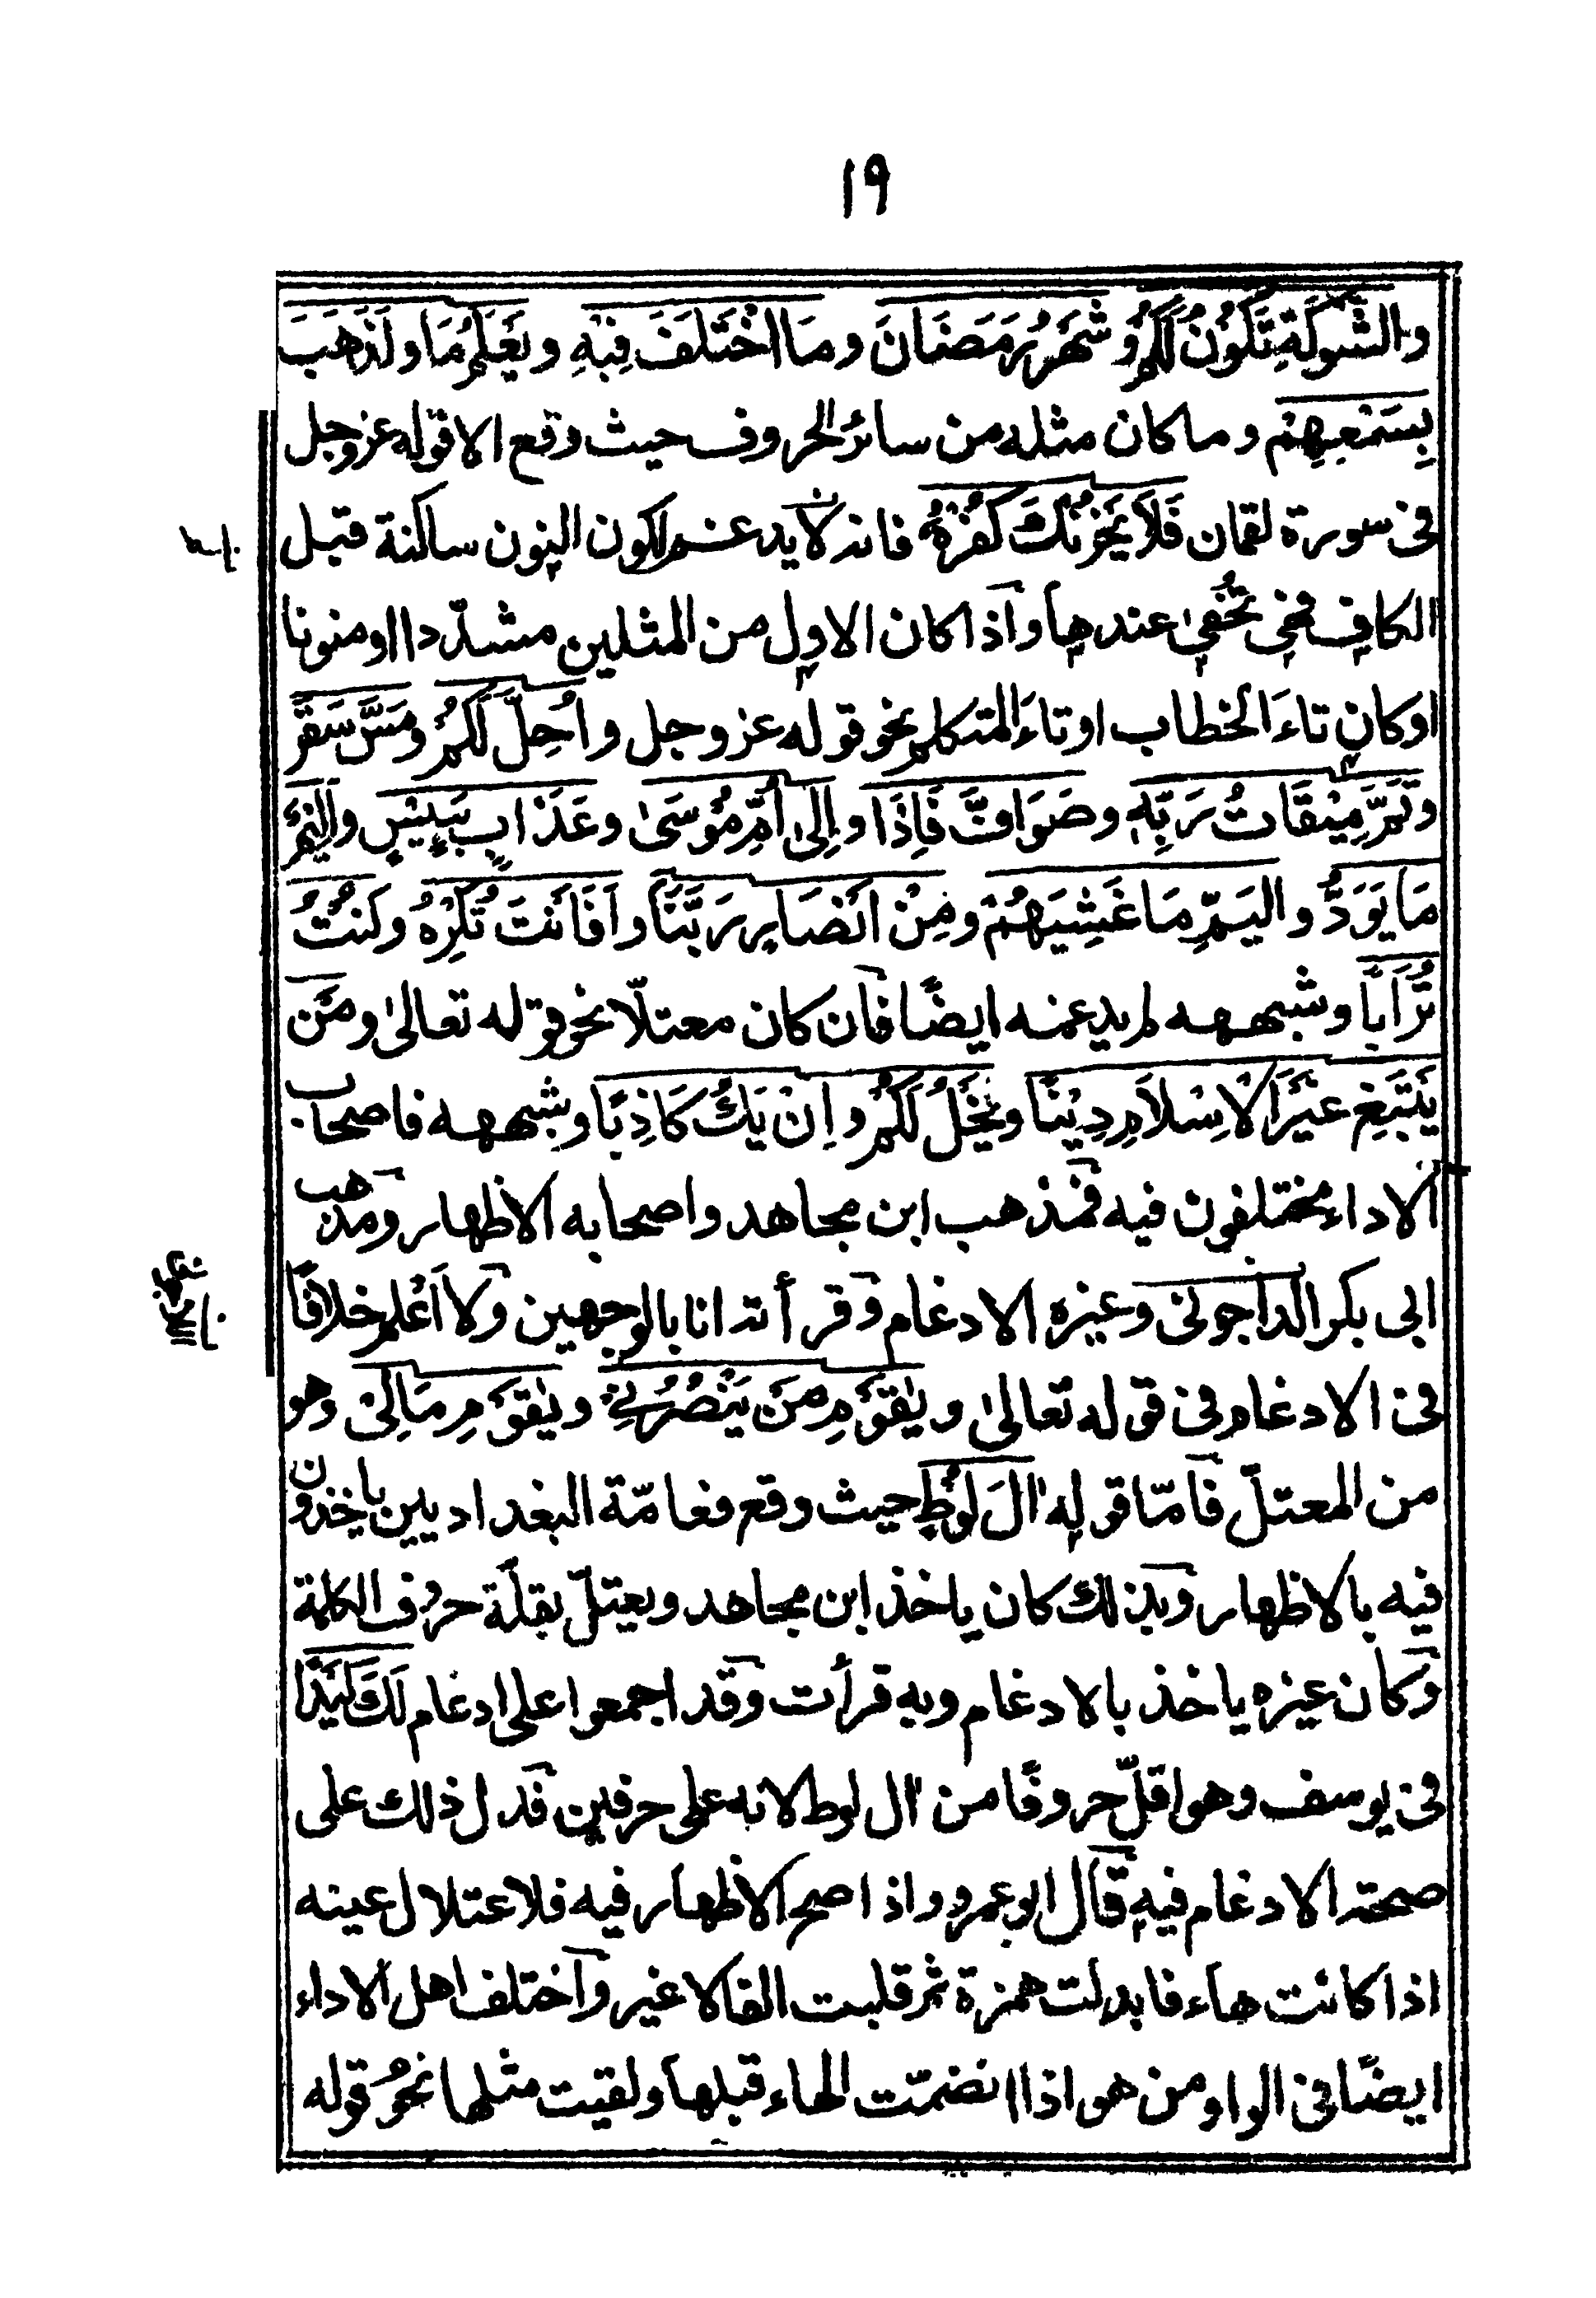 ١٩
والشَّوْكَةِ تَكُوْنُ لَكُمْ وشَهْرُ رَمَضَانَ وما اخْتَلَفَ فِيْهِ ويَعْلَمُ مَا ولَذَهَبَ
بِسَمْعِهِمْ وما كان مثله من سائر الحروف حيث وقع الا قوله عز وجل
فى سورة لقمان فَلَا يَحْزُنْكَ كُفْرُهُ فانه لا يدغم لكون النون ساكنة قبل
الكاف فهى تُخْفىٰ عندها واذا كان الاول من المثلين مشدّدا او منونا
او كان تاءَ الخطاب او تاءَ المتكلم نحو قوله عز وجل واُحِلَّ لَكُمْ ومَسَّ سَقَرَ
وتَمَّ مِيْقَاتُ رَبِّهٖ وصَوَافَّ فَاِذَا وإِلىٰ أُمِّ مُوْسىٰ وعَذَابٍ بَئِيْسٍ والْيَمِّ
مَا يَوَدُّ والْيَمِّ مَا غَشِيَهُمْ ومِنْ اَنْصَارٍ رَبَّنَا واَفَاَنْتَ تُكْرِهُ وكُنْتُ
تُرَابًا وشبهه لم يدغمه ايضًا فان كان معتلّا نحو قوله تعالىٰ ومَنْ
يَبْتَغِ غَيْرَ الْاِسْلَامِ دِيْنًا ويَخْلُ لَكُمْ واِنْ يَكُ كَاذِبًا وشبهه فاصحاب
الاداء مختلفون فيه فمذهب ابن مجاهد واصحابه الاظهار ومذهب
ابى بكر الداجونى وغيره الادغام وقرأته انا بالوجهين ولا اَعْلم خلافًا
فى الادغام فى قوله تعالىٰ ويٰقَوْمِ مَنْ يَنْصُرُنِيْ ويٰقَوْمِ مَالِىْ وهو
من المعتلّ فامّا قوله اٰلَ لُوْطٍ حيث وقع فعامّة البغداديين ياخذون
فيه بالاظهار وبذلك كان ياخذ ابن مجاهد ويعتلّ بقلّة حروف الكلمة
وكان غيره ياخذ بالادغام وبه قرأت وقد اجمعوا على ادغام لَكَ كَيْدًا
فى يوسف وهو اقلّ حروفًا من اٰل لوط لانه على حرفين فدل ذلك على
صحة الادغام فيه قال ابو عمرو واذا صح الاظهار فيه فلاعتلال عينه
اذا كانت هاء فابدلت همزة ثم قلبت الفا لا غير واختلف اهل الاداء
ايضًا فى الواو من هو اذا انضمّت الهاء قبلها ولقيت مثلها نحوُ قوله